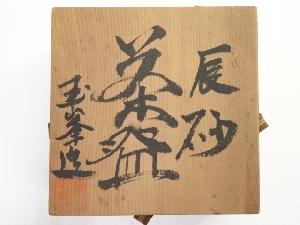 辰砂
茶碗
玉峯造